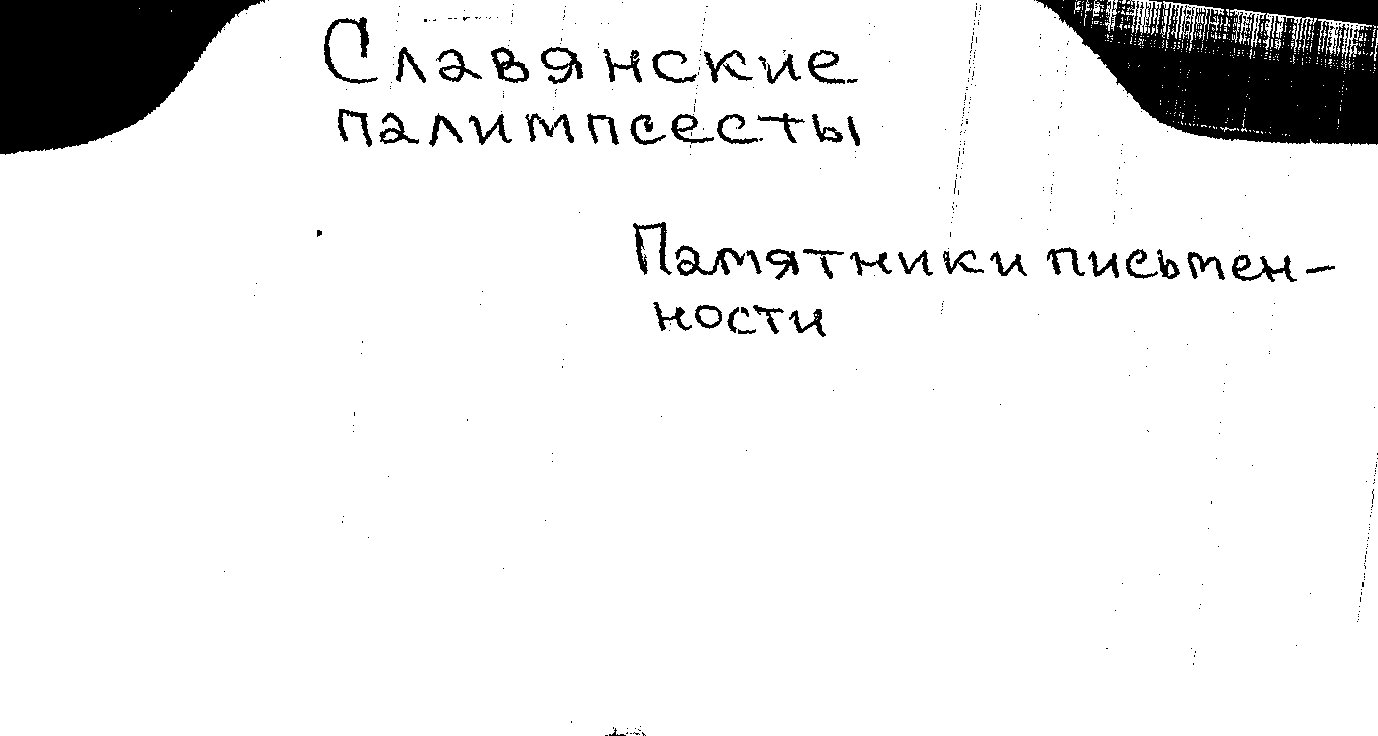 Славянские
палимпсесты
Памятники письмен-
ности